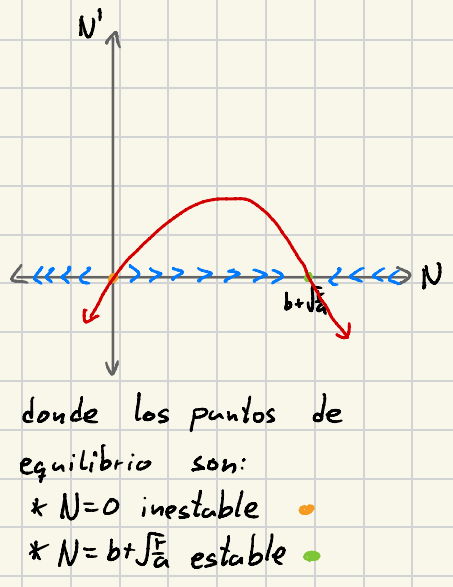 N'
N
b+√r/a
donde los puntos de
equilibrio son:
* N=0 inestable
* N=b+√r/a estable